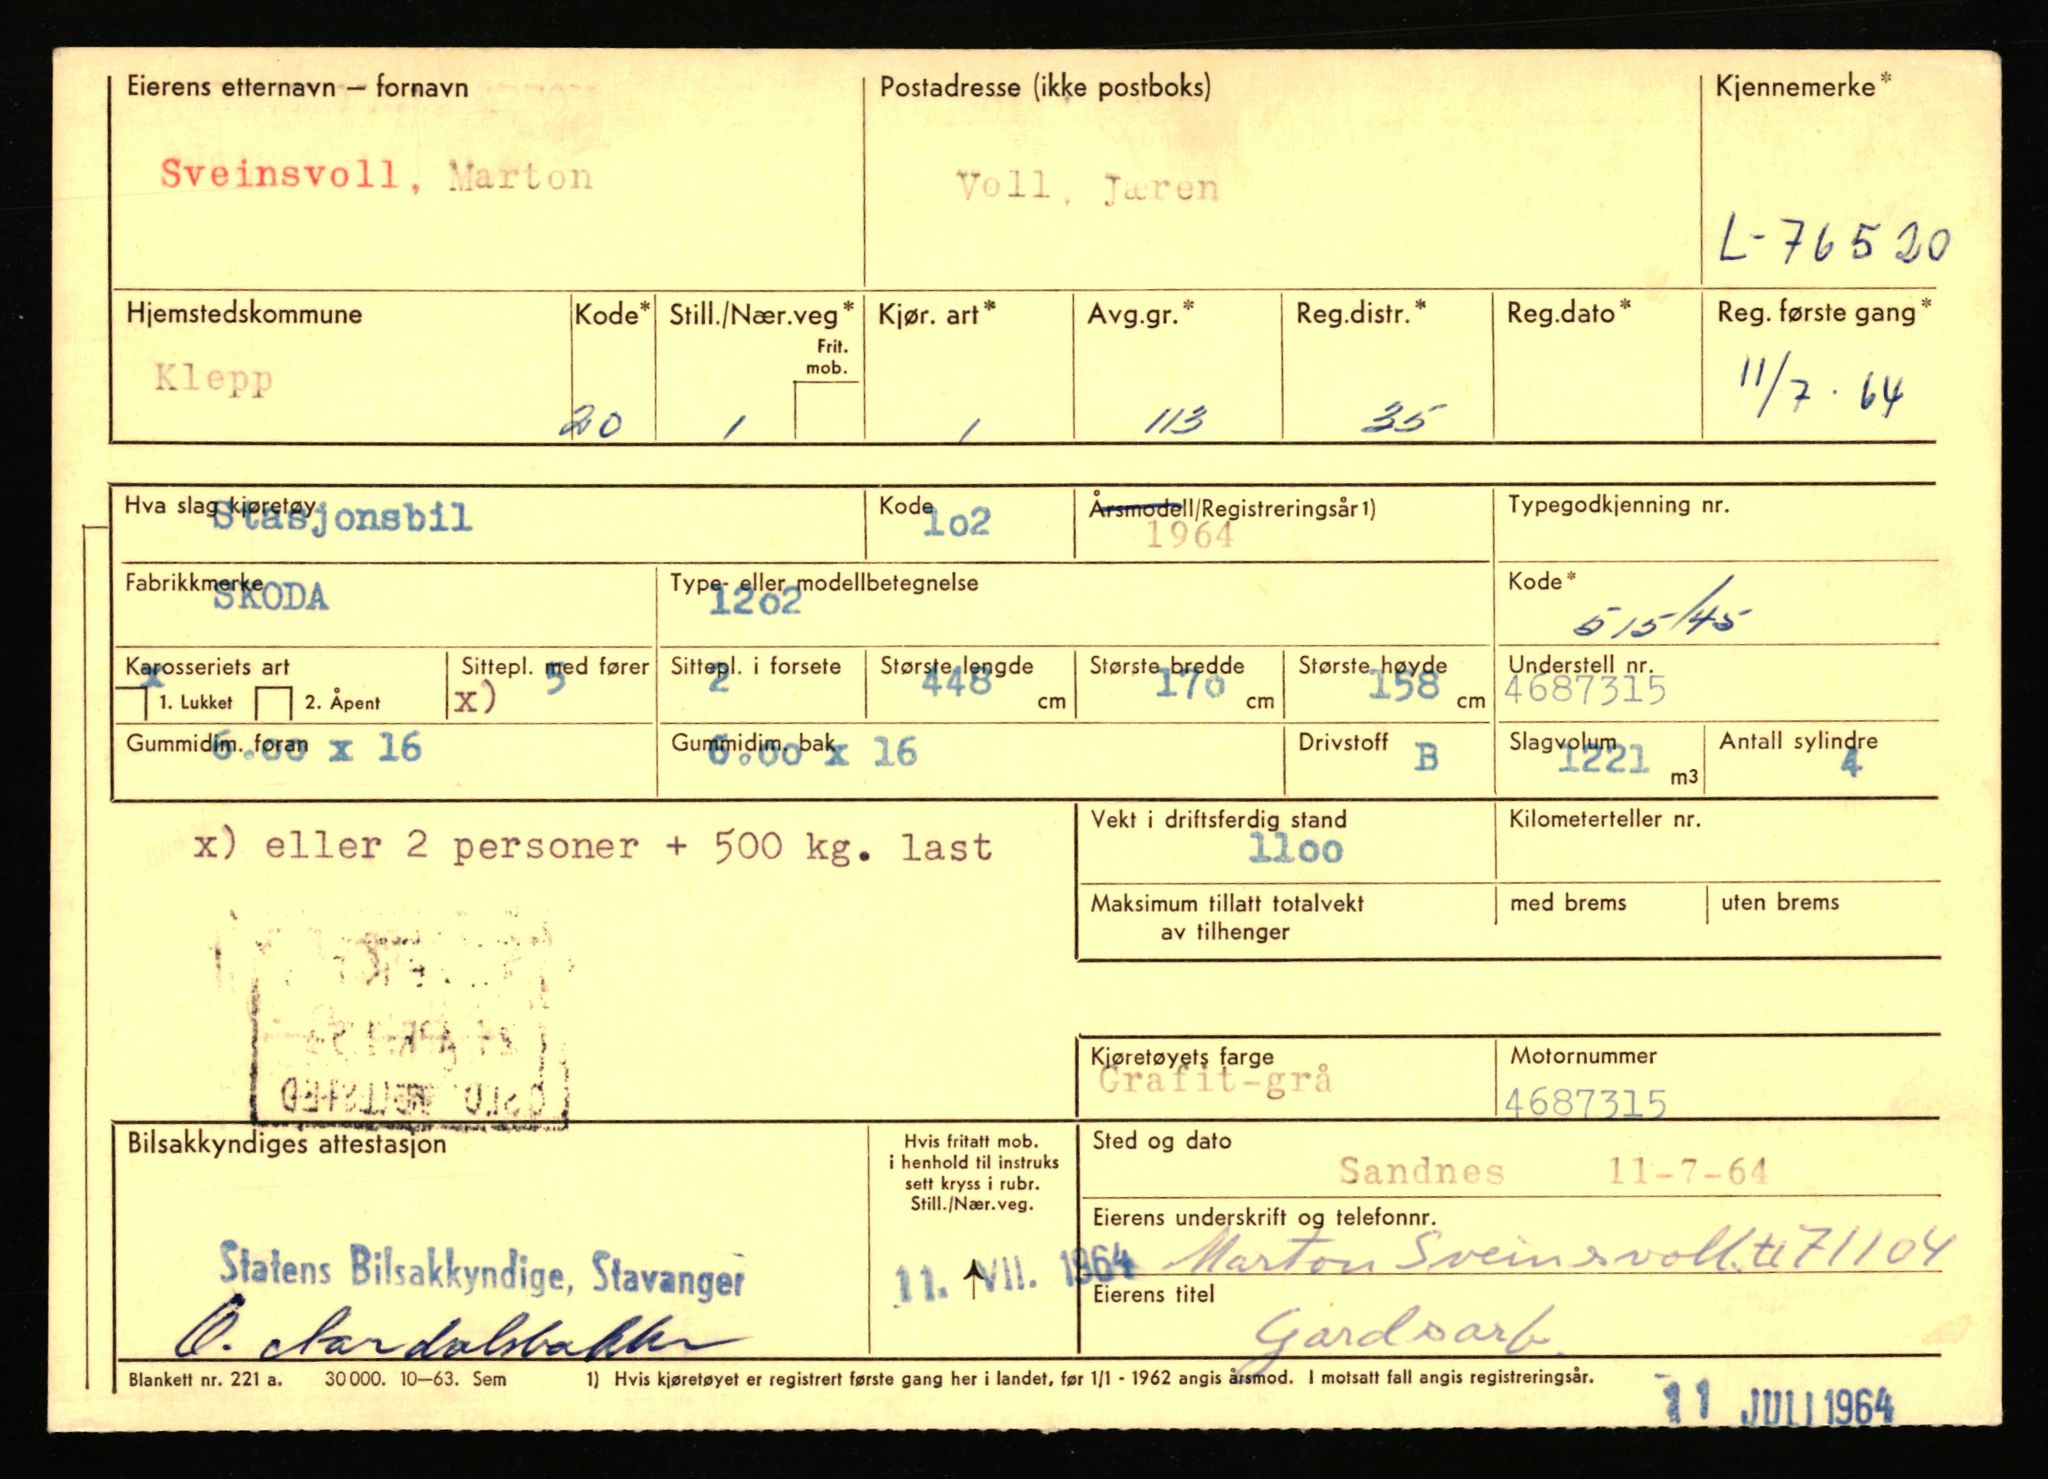 Eierens etternavn — fornavn Postadresse (ikke postboks) Kjennemerke*
Sveinsvoll, Marton Voll, Jæren
L-76520
Hjemstedskommune Kode* Still./Nær.veg* Kjør. art* Avg.gr.* Reg.distr.* Reg.dato* Reg. første gang*
Frit.
mob.
Klepp 11/7 . 64
20 1 1 113 35
Hva slag kjøretøy Stasjonsbil Kode 1o2 Årsmodell/Registreringsår1) Typegodkjenning nr.
1964
Fabrikkmerke Type- eller modellbetegnelse Kode*
SKODA 12o2 515/45
Karosseriets art Sittepl. med fører Sittepl. i forsete Største lengde Største bredde Største høyde Understell nr.
x 5 2 448 17o 158 4687315
1. Lukket 2. Åpent x) cm cm cm
Gummidim. foran Gummidim. bak Drivstoff Slagvolum Antall sylindre
6.oo x 16 6.oo x 16 B 1221 m3 4
Vekt i driftsferdig stand Kilometerteller nr.
x) eller 2 personer + 500 kg. last 11oo
Maksimum tillatt totalvekt med brems uten brems
av tilhenger
Kjøretøyets farge Motornummer
Grafit-grå 4687315
OSLO
Bilsakkyndiges attestasjon Hvis fritatt mob. Sted og dato
i henhold til instruks
sett kryss i rubr. Sandnes 11-7-64
Still./Nær.veg.
Eierens underskrift og telefonnr.
Statens Bilsakkyndige, Stavanger 11. VII. 1964 Marton Sveinsvoll. tl 71104
Eierens titel
Gardsarb.
Blankett nr. 221 a. 30 000. 10—63. Sem 1) Hvis kjøretøyet er registrert første gang her i landet, før 1/1 - 1962 angis årsmod. I motsatt fall angis registreringsår.
11 JULI 1964